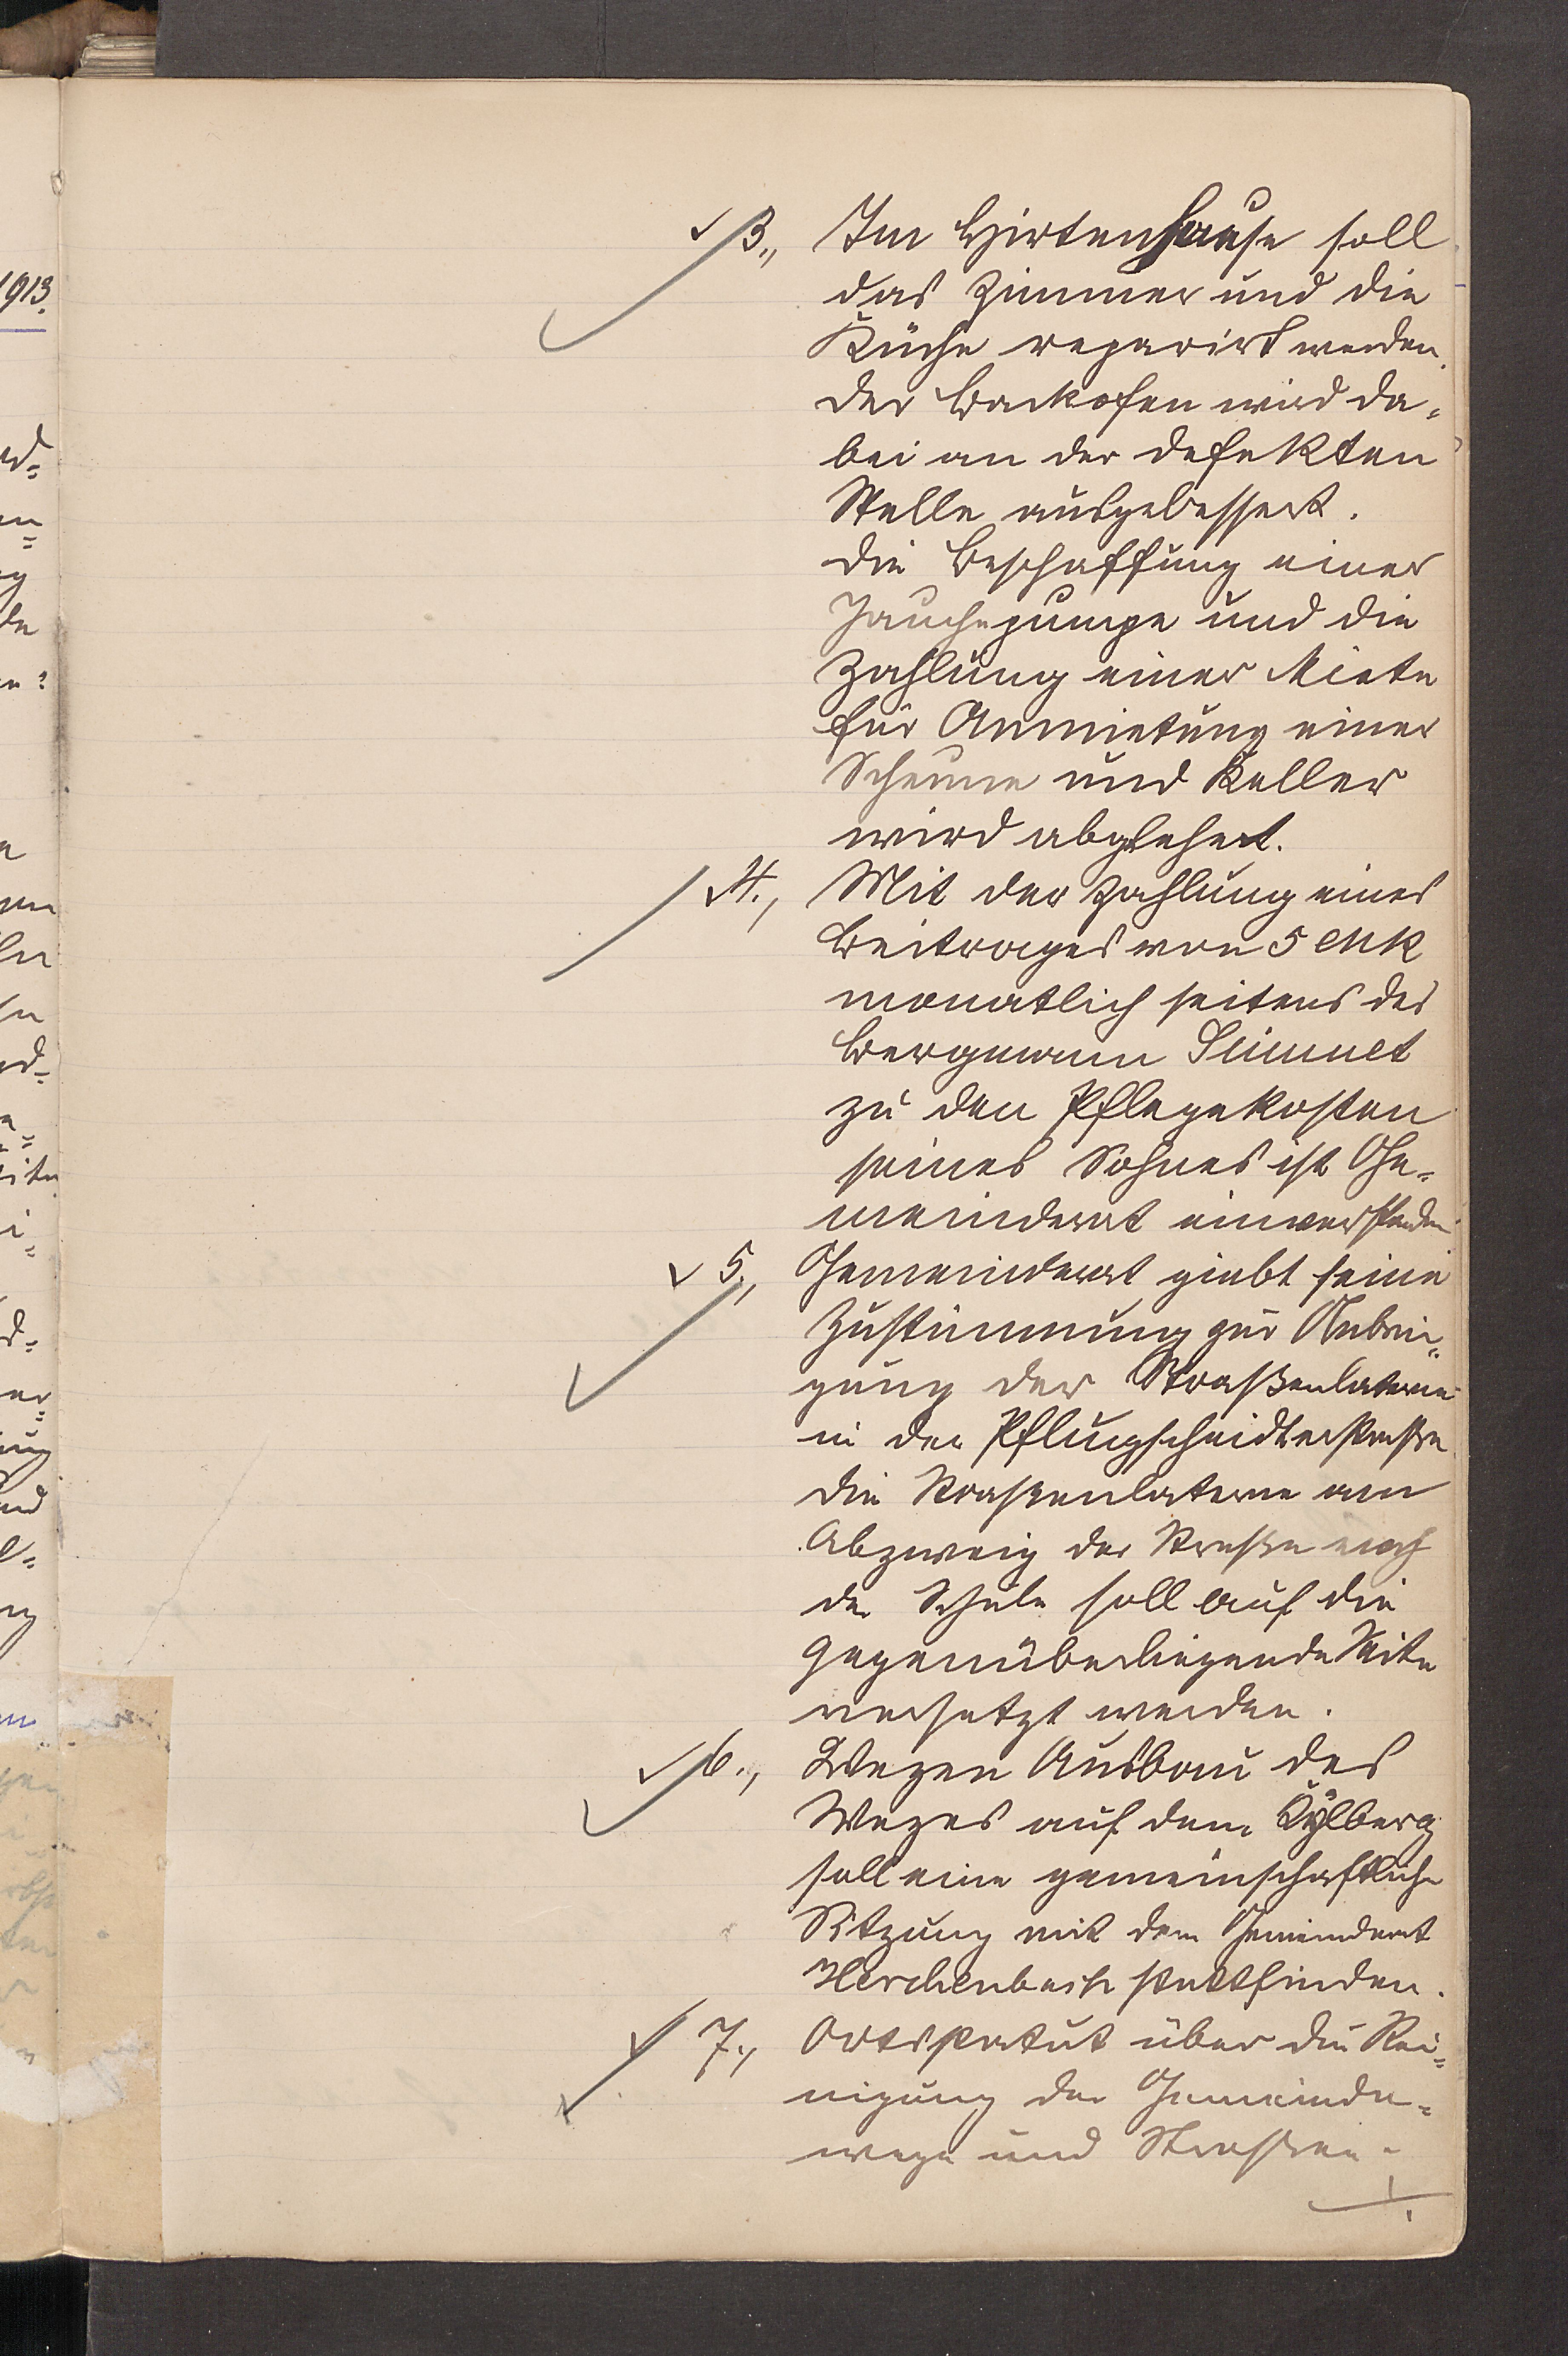 1913.
3., Im Hirtenhause soll
das Zimmer und die
Küche reparirt werden.
Der Backofen wird da-
bei an der defekten
Stelle ausgebessert.
Die Beschaffung einer
Jauchepumpe und die
Zahlung einer Miete
für Anmietung einer
Scheune und Keller
wird abgelehnt.
4., Mit der Zahlung eines
Beitrages von 5 Mk
monatlich seitens des
Bergmann Simmet
zu den Pflegekosten
seines Sohnes ist Ge-
meinderat einverstanden
5., Gemeinderat giebt seine
Zustimmung zur Anbrin-
gung der Straßenlaterne
in der Pflugscheidterstraße
Die Straßenlaterne am
Abzweig der Straße nach
der Schule soll auf die
gegenüberliegende Seite
versetzt werden.
6., Wegen Ausbau des
Weges auf dem Kylberg
soll eine gemeinschaftliche
Sitzung mit dem Gemeinderat
Herchenbach stattfinden.
7., Ortsstatut über die Rei-
nigung der Gemeinde-
wege und Straßen.